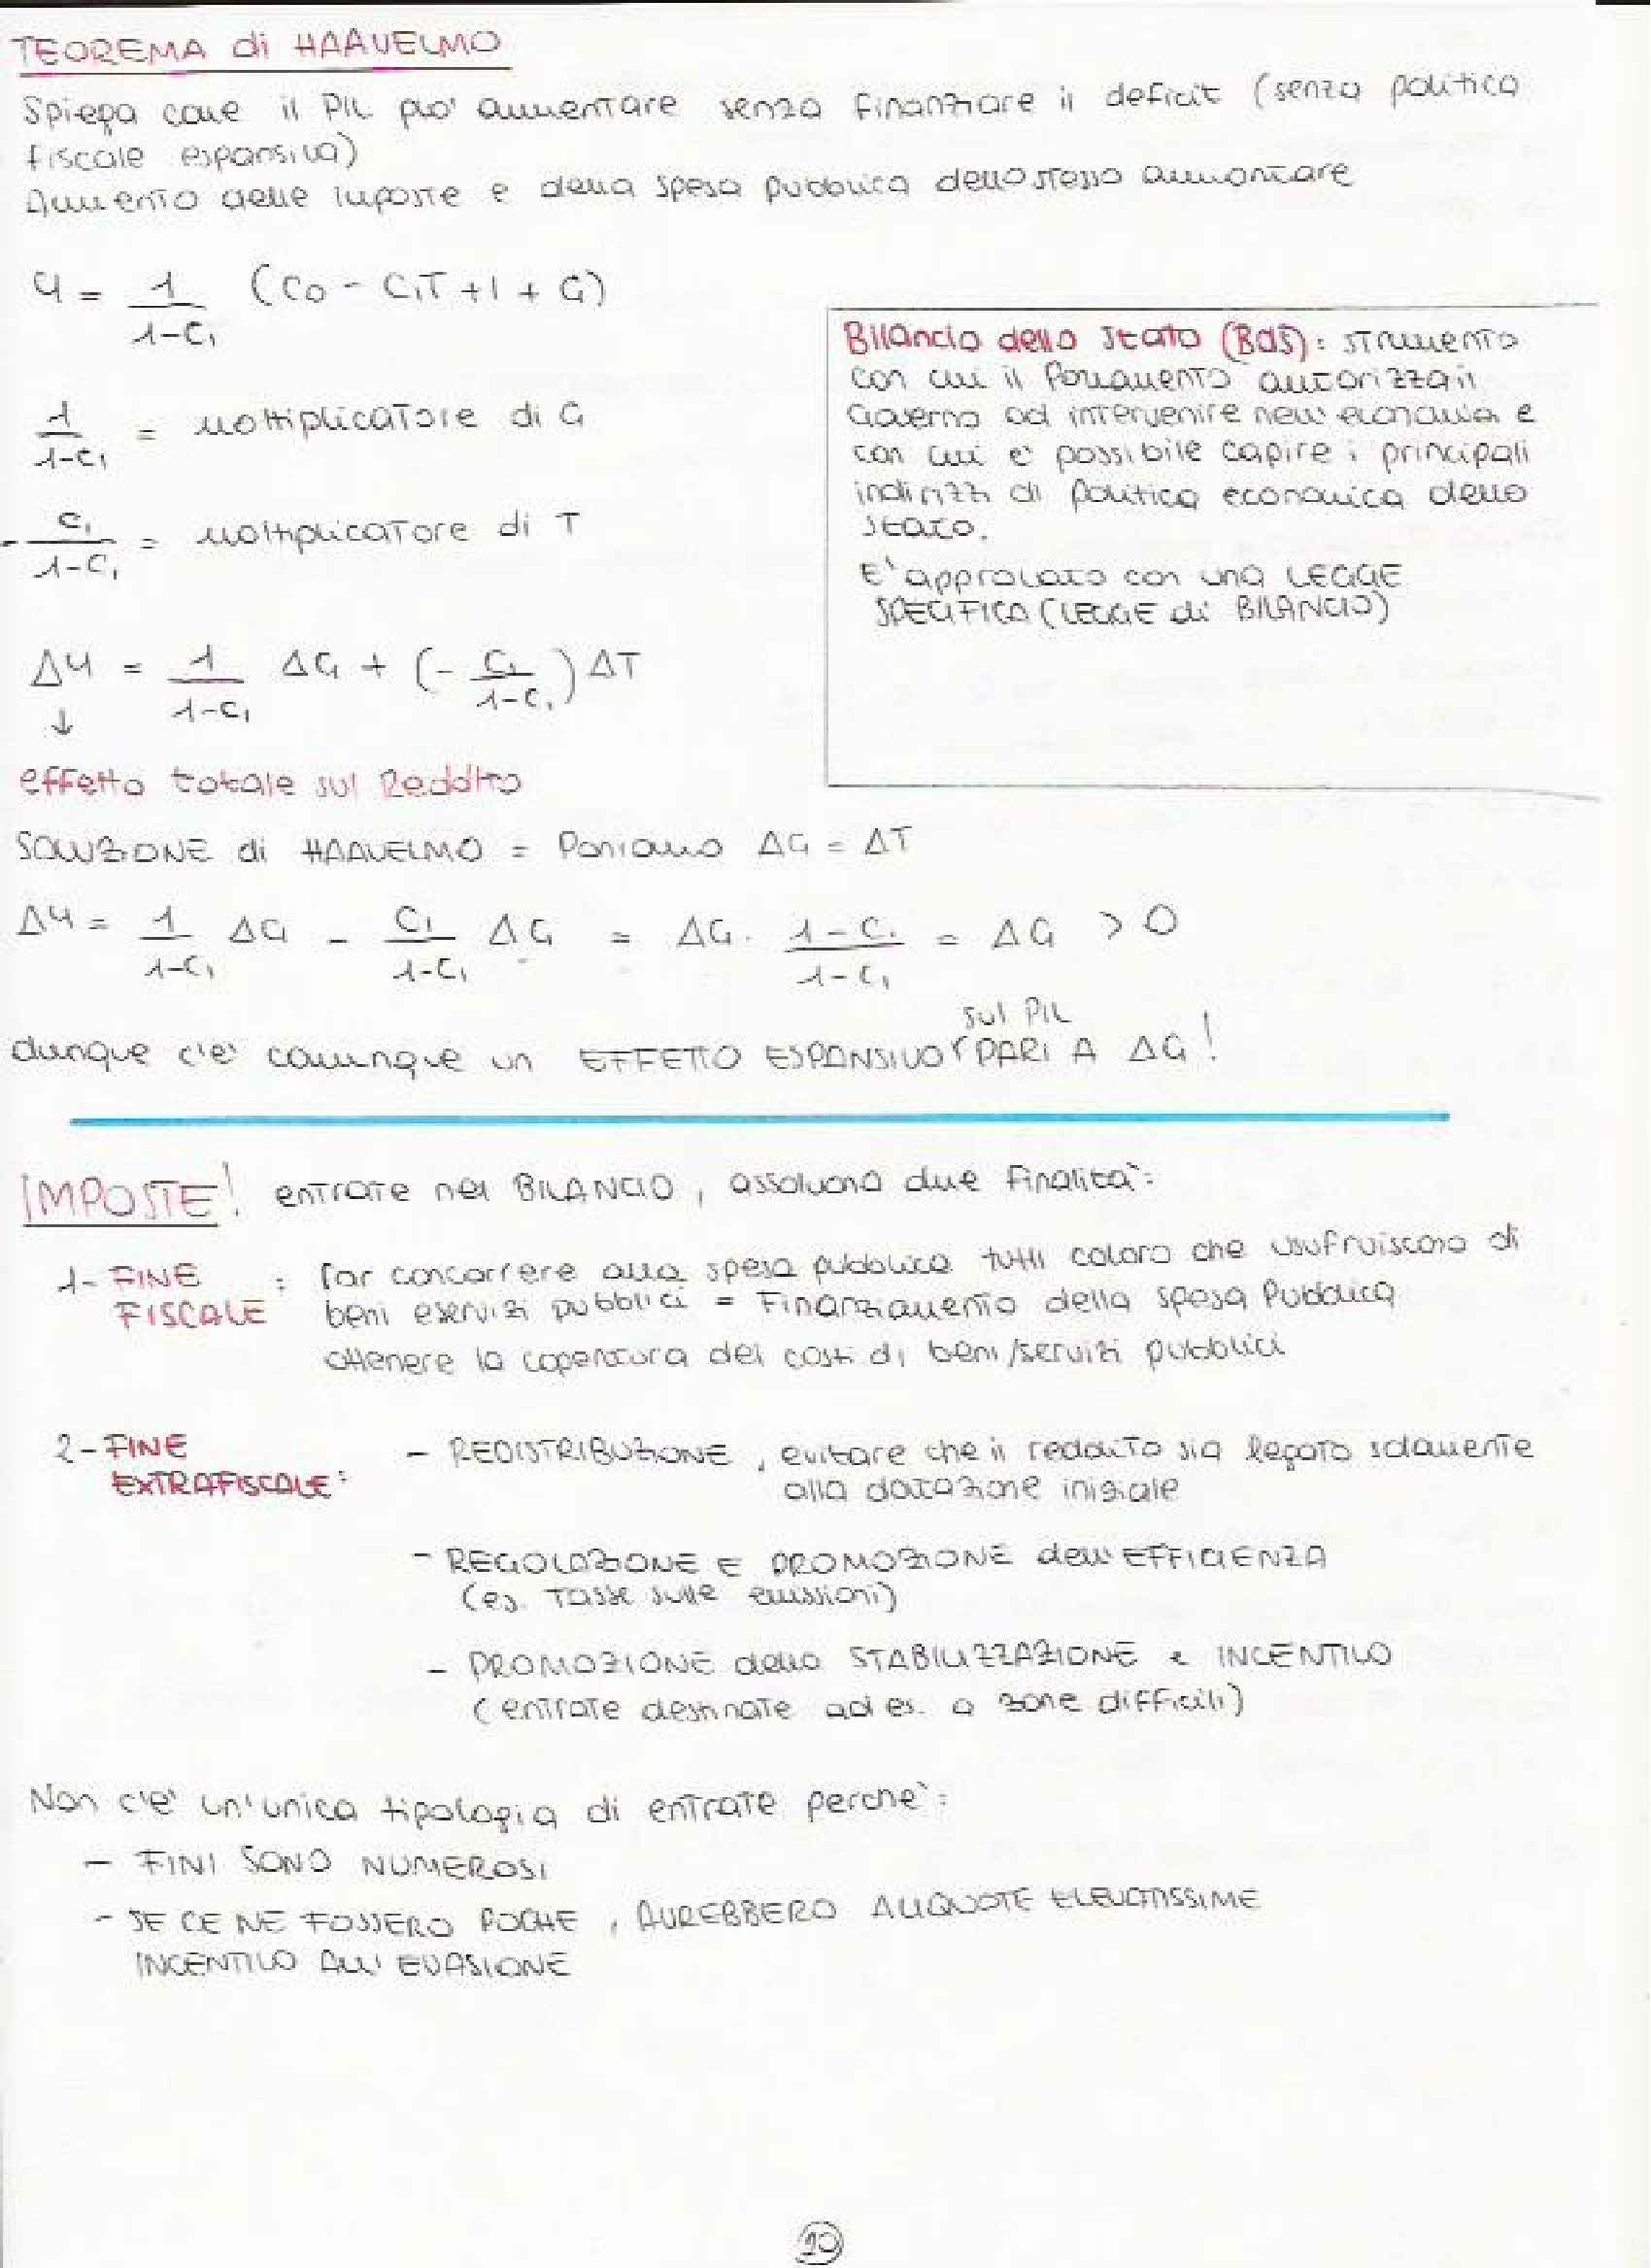 TEOREMA di HAAVELMO
Spiega come il PIL può aumentare senza finanziare il deficit (senza politica
fiscale espansiva)
Aumento delle imposte e della spesa pubblica dello stesso ammontare
Y = 1/(1-c₁) (c₀ - c₁T + I + G)
1/(1-c₁) = moltiplicatore di G
- c₁/(1-c₁) = moltiplicatore di T
ΔY = 1/(1-c₁) ΔG + (- c₁/(1-c₁)) ΔT
↓
effetto totale sul Reddito
Bilancio dello Stato (BdS): strumento
con cui il Parlamento autorizza il
Governo ad intervenire nell'economia e
con cui è possibile capire i principali
indirizzi di politica economica dello
stato.
E' approvato con una LEGGE
SPECIFICA (LEGGE di BILANCIO)
SOLUZIONE di HAAVELMO = Poniamo ΔG = ΔT
ΔY = 1/(1-c₁) ΔG - c₁/(1-c₁) ΔG = ΔG · (1-c₁)/(1-c₁) = ΔG > 0
dunque c'è comunque un EFFETTO ESPANSIVO sul PIL PARI A ΔG!
IMPOSTE! entrate nel BILANCIO, assolvono due finalità:
1- FINE FISCALE : far concorrere alla spesa pubblica tutti coloro che usufruiscono di
beni e servizi pubblici = Finanziamento della spesa Pubblica
ottenere la copertura dei costi di beni/servizi pubblici
2- FINE EXTRAFISCALE: - REDISTRIBUZIONE, evitare che il reddito sia legato solamente
alla dotazione iniziale
- REGOLAZIONE E PROMOZIONE dell'EFFICIENZA
(es. Tasse sulle emissioni)
- PROMOZIONE della STABILIZZAZIONE e INCENTIVO
(entrate destinate ad es. a zone difficili)
Non c'è un'unica tipologia di entrate perchè:
- FINI SONO NUMEROSI
- SE CE NE FOSSERO POCHE, AVREBBERO ALIQUOTE ELEVATISSIME
INCENTIVO ALL'EVASIONE
10